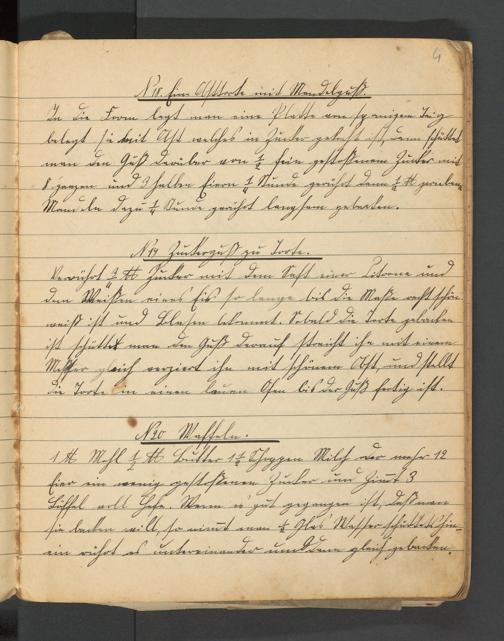 4
N 18. Eine Obsttorte mit Mandelguß.
In die Form legt man eine Platte von Teig
belegt sie mit Obst welches in Zucker gekocht ist, dann schüttet
man den Guß darüber von ½ fein gestoßenem Zucker mit
8 ganzen und 3 halben Eiern ¼ Stunde gerührt dann ½ ℔
Mandeln dazu ¼ Stunde gerührt langsam gebacken.
N 19 Zuckerguß zu Torte.
Verrührt ℔ Zucker mit dem Saft einer Zitrone und
den Weißen eines Eis so lange bis die Maße recht schön
weiß ist und Blasen bekommt. Sobald die Torte gebacken
ist schüttet man den Guß darauf, streicht ihn mit einem
Messer gleich verziert ihn mit schönem Obst, und stellt
die Torte in einen lauen Ofen bis der Guß fertig ist.
N 20 Waffeln.
1 ℔ Mehl ½ ℔ Butter 1 ½ Schoppen Milch oder mehr 12
Eier ein wenig gestoßenen Zucker und Zimt 3
Löffel voll Hefe. Wenn es gut gegangen ist, daß man
sie backen will, so nimmt man ½ Glas Wasser schüttet es hin-
ein rührt es untereinander und dann gleich gebacken.